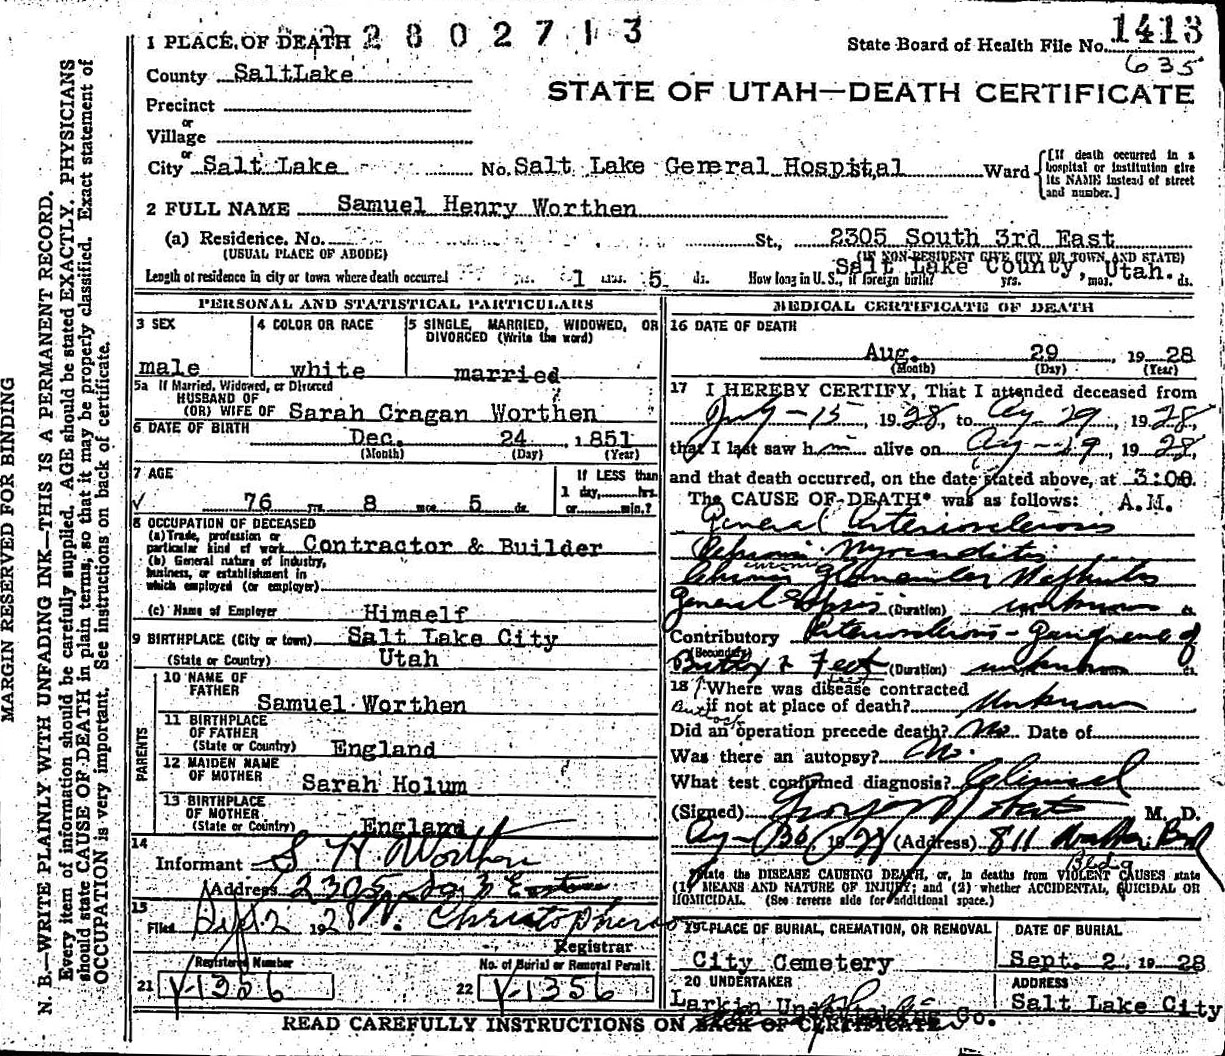 2 8 0 2 7 1 3
1 PLACE OF DEATH
State Board of Health File No. 1413
635
County SaltLake
STATE OF UTAH—DEATH CERTIFICATE
Precinct
or
Village
or
City Salt Lake No. Salt Lake General Hospital Ward [If death occurred in a hospital or institution give its NAME instead of street and number.]
2 FULL NAME Samuel Henry Worthen
(a) Residence. No. St., 2305 South 3rd East
(USUAL PLACE OF ABODE) (IF NON-RESIDENT GIVE CITY OR TOWN AND STATE)
Salt Lake County, Utah.
Length of residence in city or town where death occurred yrs. 1 mos. 5 ds. How long in U. S., if foreign birth? yrs. mos. ds.
PERSONAL AND STATISTICAL PARTICULARS
3 SEX
male
4 COLOR OR RACE
white
5 SINGLE, MARRIED, WIDOWED, OR
DIVORCED (Write the word)
married
5a If Married, Widowed, or Divorced
HUSBAND OF
(OR) WIFE OF Sarah Cragan Worthen
6 DATE OF BIRTH
Dec. 24 , 1851
(Month) (Day) (Year)
7 AGE
76 yrs. 8 mos. 5 ds.
If LESS than
1 day, hrs.
or min.?
8 OCCUPATION OF DECEASED
(a) Trade, profession or
particular kind of work Contractor & Builder
(b) General nature of industry,
business, or establishment in
which employed (or employer)
(c) Name of Employer Himself
9 BIRTHPLACE (City or town) Salt Lake City
(State or Country) Utah
PARENTS
10 NAME OF
FATHER
Samuel Worthen
11 BIRTHPLACE
OF FATHER
(State or Country) England
12 MAIDEN NAME
OF MOTHER
Sarah Holum
13 BIRTHPLACE
OF MOTHER
(State or Country) England
14
Informant S H Worthen
Address 2305 So 3 East
15
Filed Sept 2 1928 Christopherson
Registrar
Registered Number
21 V-1356
No. of Burial or Removal Permit
22 V-1356
MEDICAL CERTIFICATE OF DEATH
16 DATE OF DEATH
Aug. 29 , 19 28
(Month) (Day) (Year)
17 I HEREBY CERTIFY, That I attended deceased from
July-15, 1928, to Aug-29, 1928,
that I last saw him alive on Aug-29, 1928,
and that death occurred, on the date stated above, at 3:00
The CAUSE OF DEATH* was as follows: A.M.
General Arteriosclerosis
Chronic Myocarditis
chronic
Glomerular Nephritis
General Sepsis (Duration) unknown
Contributory Arteriosclerosis - Gangrene of
(Secondary)
Buttox & Feet (Duration) unknown ds.
Feet
18 Where was disease contracted
if not at place of death? Unknown
Buttock
Did an operation precede death? No Date of
Was there an autopsy? No.
What test confirmed diagnosis? Clinical
(Signed) M. D.
Aug-30, 1928 (Address) 811 Bldg
*State the DISEASE CAUSING DEATH, or, in deaths from VIOLENT CAUSES state
(1) MEANS AND NATURE OF INJURY; and (2) whether ACCIDENTAL, SUICIDAL OR
HOMICIDAL. (See reverse side for additional space.)
19 PLACE OF BURIAL, CREMATION, OR REMOVAL
City Cemetery
DATE OF BURIAL
Sept. 2, 19 28
20 UNDERTAKER
Larkin Undertaking Co.
ADDRESS
Salt Lake City
READ CAREFULLY INSTRUCTIONS ON BACK OF CERTIFICATE
MARGIN RESERVED FOR BINDING
N. B.—WRITE PLAINLY WITH UNFADING INK—THIS IS A PERMANENT RECORD.
Every item of information should be carefully supplied. AGE should be stated EXACTLY. PHYSICIANS
should state CAUSE OF DEATH in plain terms, so that it may be properly classified. Exact statement of
OCCUPATION is very important. See instructions on back of certificate.